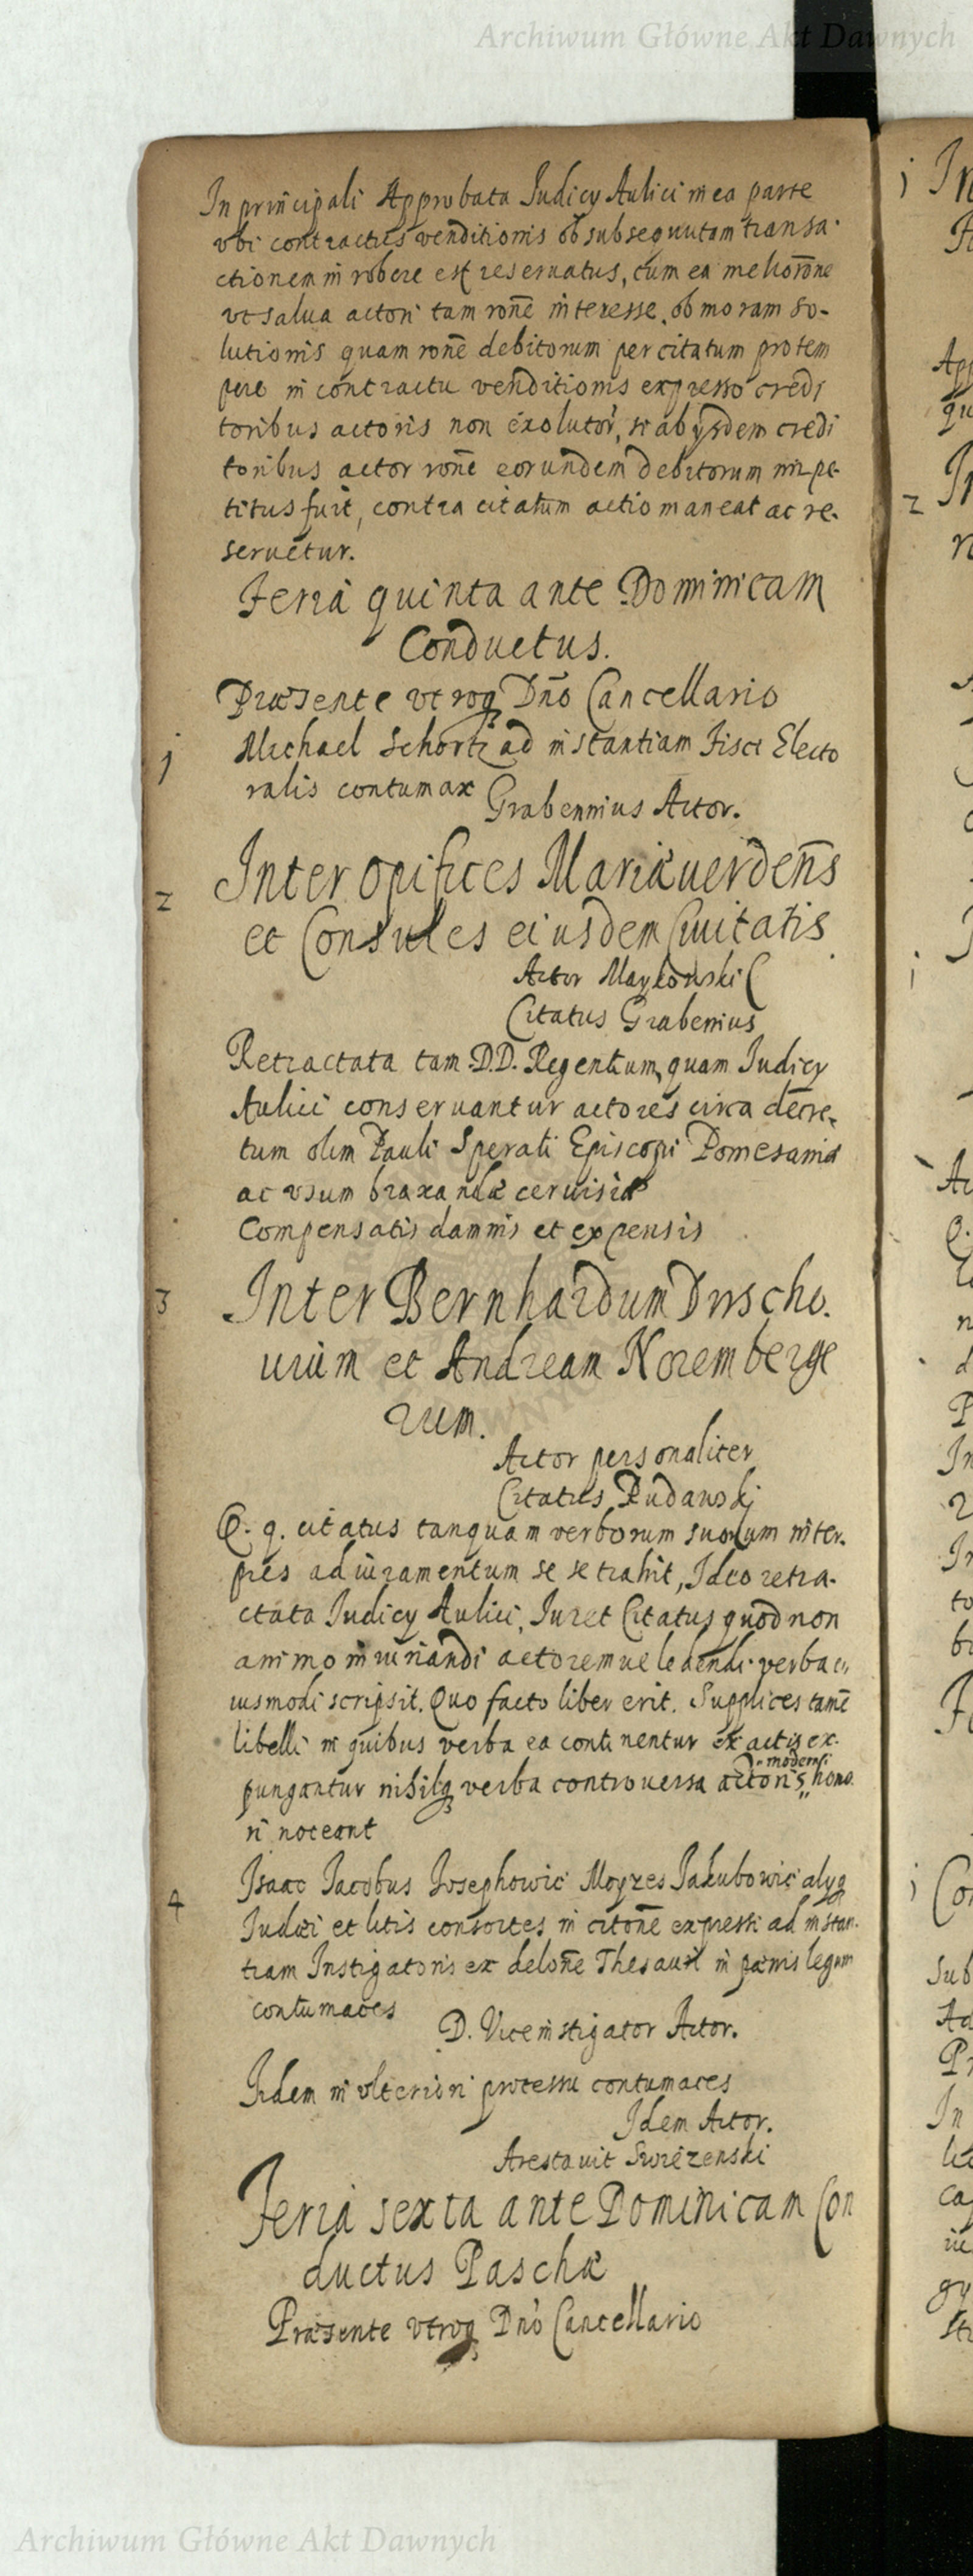 Archiwum Główne Akt Dawnych
In principali Approbata Iudicy Aulici in ea parte
vbi contractus venditionis ob subsequutam transa-
ctionem in robore est reseruatus, cum ea meliorōne
vt salua actori tam ronē interesse ob moram so-
lutionis quam ronē debitorum per citatum pro tem
pore in contractu venditionis expresso credi
toribus actoris non exolutor', si ab ysdem credi
toribus actor ronē eorundem debitorum impe-
titus fuit, contra citatum actio maneat ac re-
seruetur.
Feria quinta ante Dominicam
Conductus.
Præsente vtroq Dño Cancellario
1 Michael Schortz ad instantiam Fisci Electo
ralis contumax
Grabennius Actor.
2 Inter Opifices Mariæuerdeñs
et Consules eiusdem Ciuitatis
Actor Maykowski
Citatus Grabenius
Retractata tam D.D. Regentium, quam Iudicy
Aulici conseruantur actores circa decre-
tum olim Pauli Sperati Episcopi Pomesaniæ
ac vsum braxandæ ceruisiæ
Compensatis damnis et expensis
3 Inter Bernhardum Drscho.
uium et Andream Noremberge
rum.
Actor personaliter
Citatus Pudawski
Q. q. citatus tanquam verborum suorum inter-
pres ad iuramentum se se trahit, Ideo retra-
ctata Iudicy Aulici, Iuret Citatus quod non
animo iniuriandi actoremue ledendi verba ei,
iusmodi scripsit. Quo facto liber erit. Supplices tamē
libelli in quibus verba ea continentur ex actis ex-
moderni
pungantur nihilq verba controuersa actoris hono
ri noceant
4 Isaac Iacobus Iosephowic Moyzes Iakubowic alyq
Iudæi et litis consortes in citonē expressi ad instan-
tiam Instigatoris ex delonē Thesauri in pænis legum
contumaces
D. Viceinstigator Actor.
Iidem in vlteriori processu contumaces
Idem Actor.
Arestauit
Feria sexta ante Dominicam Con
ductus Paschæ
Præsente vtroq Dño Cancellario
Archiwum Główne Akt Dawnych